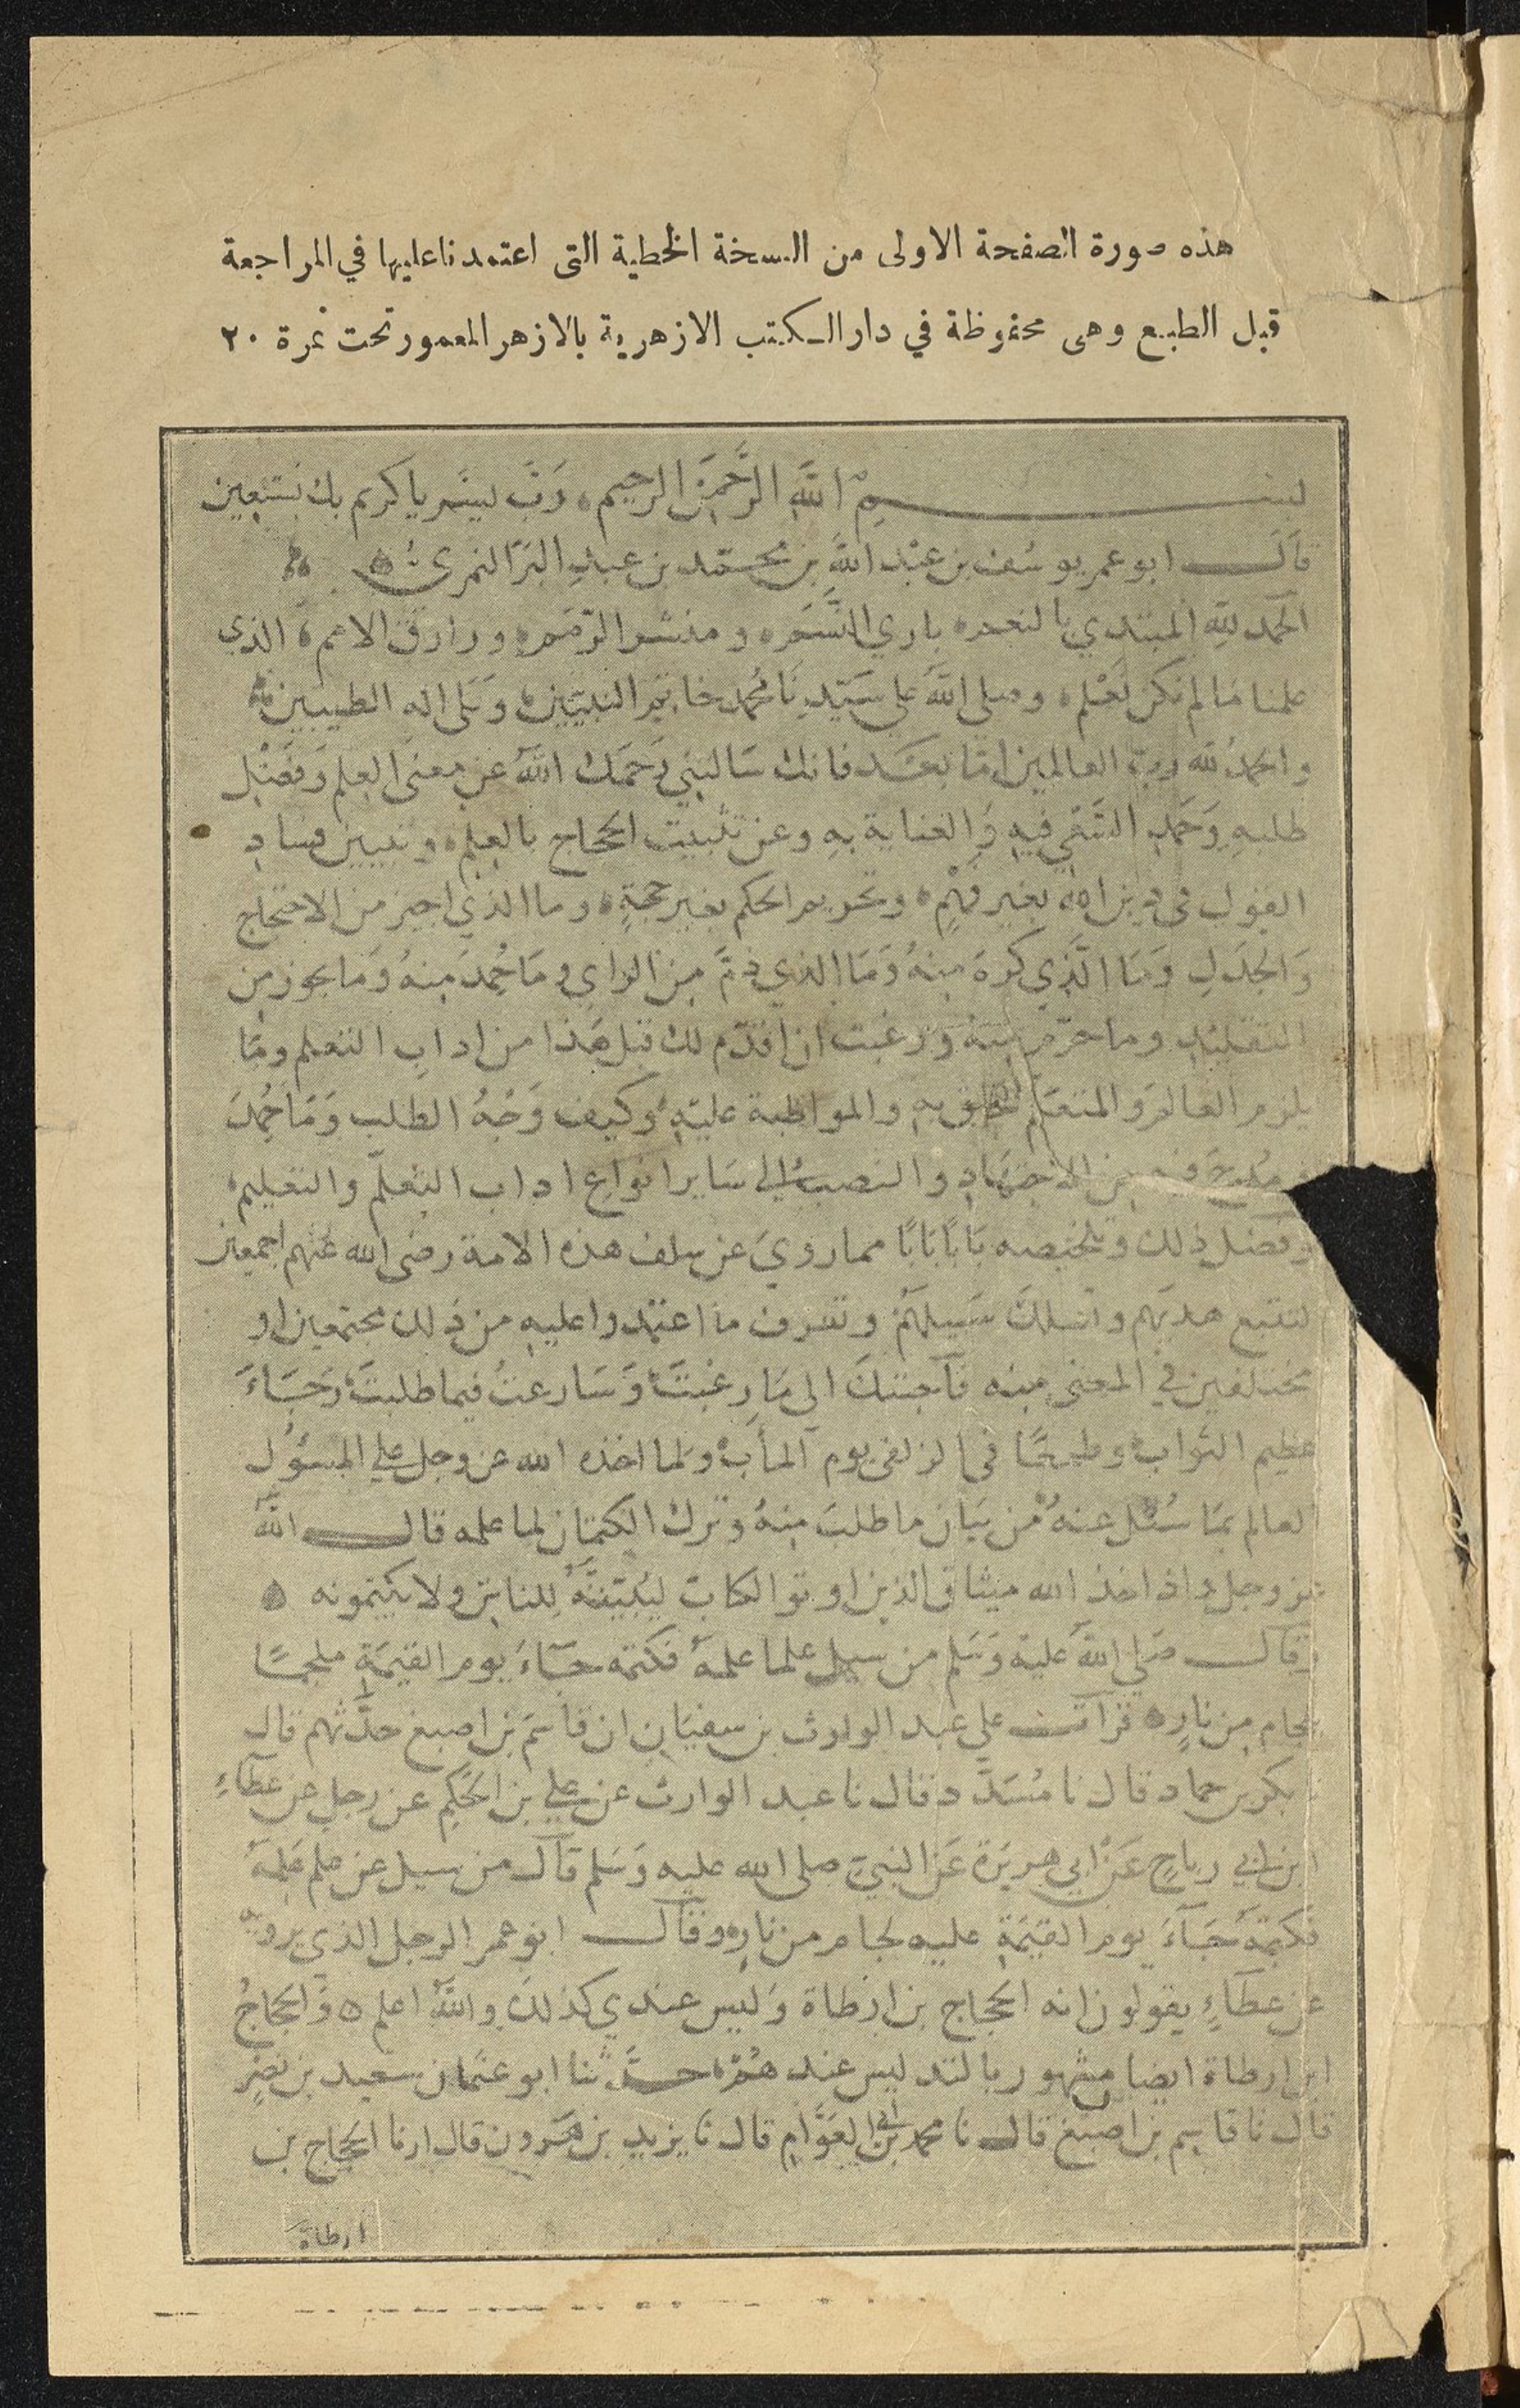 هذه صورة الصفحة الاولى من النسخة الخطية التى اعتمدنا عليها في المراجعة
قبل الطبع وهى محفوظة في دار الكتب الازهرية بالازهر المعمور تحت نمرة ٢٠
بسم اللَّه الرَّحمن الرحيم، رَبِّ يسِّر يا كريم بك نستعين
قالَ ابو عمر يوسُف بن عبْد اللَّهِ بن محمّد بن عبدِ البَرّ النمرى
الحمد للَّهِ المبتدي بالنعمه باري النَّسَمَه و منشر الرّمَمه ورازق الامم الذي
علمنا مَا لم نكن نَعْلم وصلى اللَّه على سَيّدِنَا مُحمد خاتم النبيّين وَعَلى اله الطيبين
والحمدُ لله رب العالمين امّا بعَد فانك سَالتنِي رَحمَك اللَّهُ عن معنىَ العِلم وَفَضْل
طلبهِ وَحَمَدِ السَّعْي فيهِ وَالعناية بهِ وعن تثبيت الحجاج بالعِلم وتبيين فساد
القول فى دين الله بغير فَهْمٍ وتحريم الحكم بغير حجةٍ وما الذي اجيز من الاحتجاج
وَالجدَلِ وَمَا الَّذِي كرهَ منهُ وَمَا الذي ذمَّ من الراي وَمَا حُمِدَ مِنهُ وَمَا يجوز من
التقليد وما حرّم منهُ وَرغبت ان اقدّم لك قبل هَذا من ادابِ التعلم ومَا
يلزم العَالمَ وَالمتعَلم التخلق بهِ والمواظبة عليهِ وكيف وَجْهُ الطلب وَمَا حُمِدَ
ومُدِحَ فيه من الاجتهَادِ والنصب الى سَاير انواعِ اداب التعلّم والتعليم
وَفضل ذلك وتلخيصه بَابًا بَابًا مما روىَ عن سلف هذه الامة رضى الله عَنهم اجمعين
لتتبع هديَهم وتسلك سَبيلهمْ وتعرف ما اعتمدوا عليهِ من ذَلك مجتمعين او
مختلفين في المعنى منه فأجبتكَ الى مَا رغبتَ وَسَارعتُ فيما طلبتَ رَجَاءَ
عظيم الثواب وطمعًا فى الزلفى يوم المآب ولما اخذه الله عز وجل على المسئوُل
العالم بمَا سُئل عنهُ من بَيان ما طلبَ منهُ وترك الكتمان لما علمه قال اللّه
عز وجل واذ اخذ الله ميثاق الذين اوتو الكاب ليُبيّننَّهُ للناس ولا يكتمونه
وقال صَلى اللَّه عليهِ وَسَلم من سيل علما علمهُ فكتمه جَآءَ يوم القيمَةِ ملجمًا
بلجام مِن نارٍ قرآت على عبد الوارث بن سفيَان ان قاسَم بن اصبغ حدَّثهم قال
نا بكر بن حماد قال نا مُسَدَّد قال نا عبد الوارث عن على بن الحَكِم عن رجل عن عطآءٍ
ابن ابي رباحٍ عَنْ ابي هريرَة عَن النبيّ صلى الله عليه وَسَلم قآل من سيل عن علم عَلِمَهُ
فَكتمهُ جَآءَ يوم القيَمَةِ عليهِ لجام من نارٍ وقآل ابو عمر الرجل الذي يرويه
عن عطآءٍ يقولون انه الحجاج بن ارْطاة وَليس عندي كذلك واللَّهُ اعلم وَالحجاجُ
ابن ارطاة ايضا مشهور بالتدليس عند هُمْ حدَّثنا ابو عثمان سعيد بن نصر
قال نا قاسم بن اصبَغ قال نا محمد بن ابى العَوَّامِ قال نا يزيد بن هَرون قال ارنا الحجاج بن
ارطاة